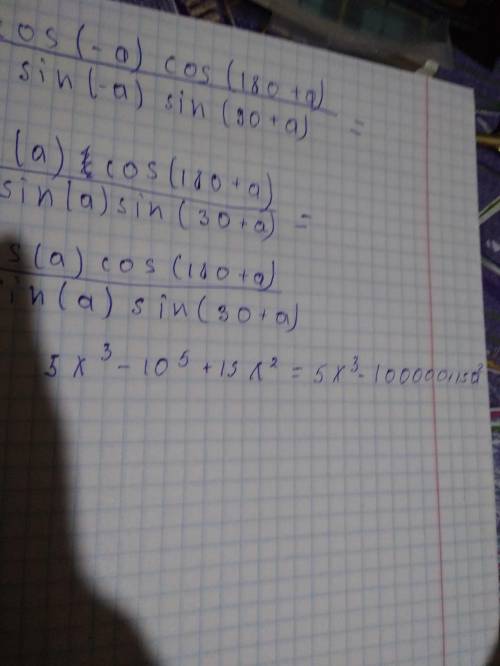 cos(-a) cos(180+a)
sin(-a) sin(90+a) =
(a) cos(180+a)
sin(a) sin(30+a) =
s(a) cos(180+a)
in(a) sin(30+a)
5x³ - 10⁵ + 15x² = 5x³ - 100000